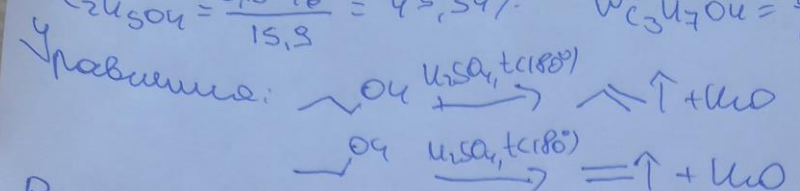 C2H5OH = 15,9 = 45,54% W C3H7OH =
Уравнения: OH H2SO4, t(180°) ↑ + H2O
OH H2SO4, t(180°) = ↑ + H2O